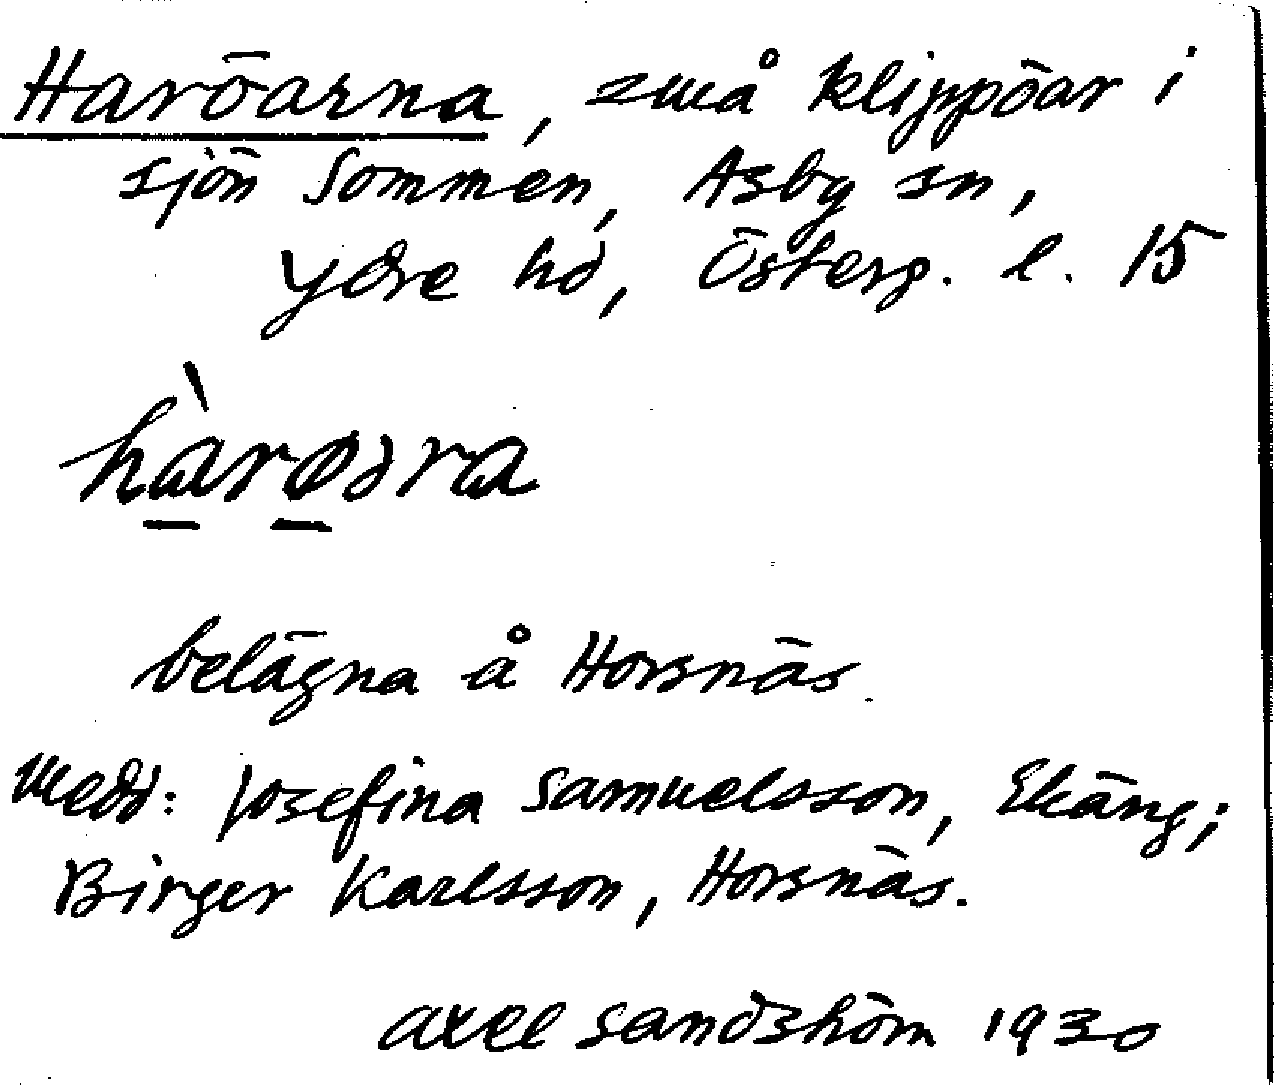 Haröarna, små klippöar i
sjön Sommen, Asby sn,
Ydre hd, Österg. l. 15
hàrøᴈra
belägna å Horsnäs.
Medd: Josefina Samuelsson, Ekäng;
Birger Karlsson, Horsnäs.
Axel Sandström 1930